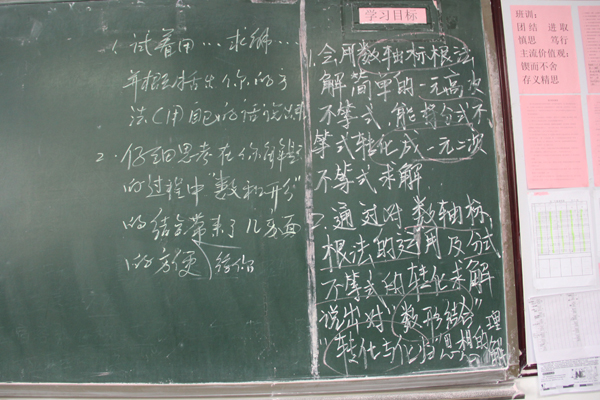 1. 试着用…求解
并概括出你的方
法(用自己的话说出来
2. 仔细思考在你解题
的过程中"数和形"
的结合带来了几方面
的方便 给你
学习目标
1. 会用数轴标根法
解简单的一元高次
不等式,能将分式不
等式转化成一元二次
不等式求解
2. 通过对数轴标
根法的运用及分式
不等式的转化求解
说出对"数形结合"
"转化与化归"思想的理解
班训:
团结 进取
慎思 笃行
主流价值观:
锲而不舍
存义精思